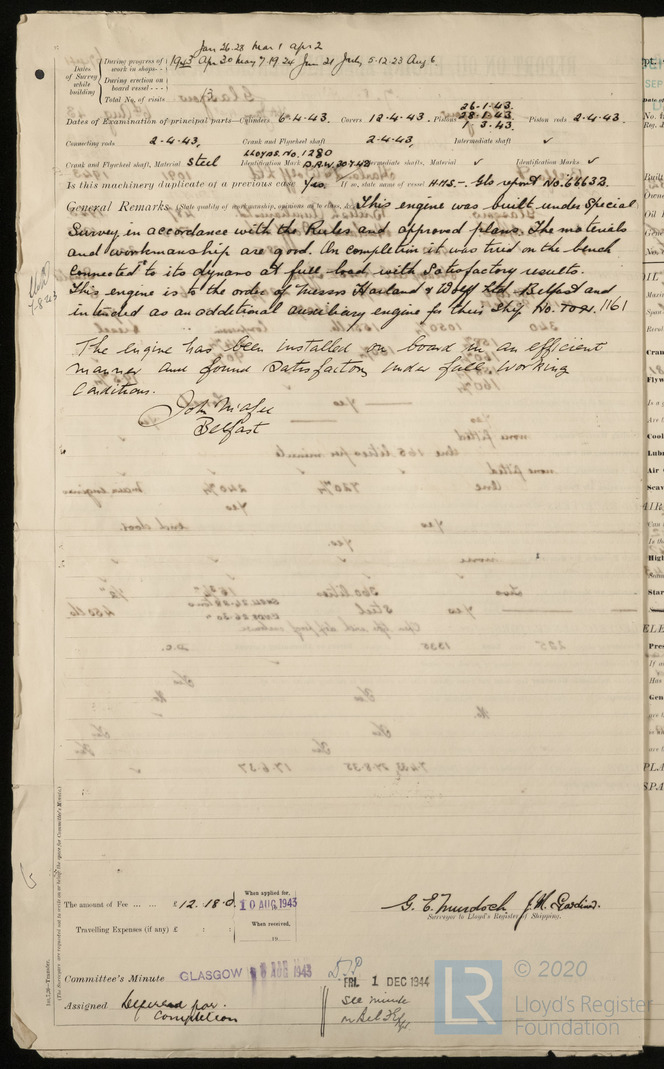 Jan 26.28 Mar 1 Apr 2
Dates of Survey while building
During progress of work in shops - - 1943 Apr 30 May 7.19.24 Jun 21 July 5.12.23 Aug 6.
During erection on board vessel - - -
Total No. of visits 13
26-1-43.
28-1-43
Dates of Examination of principal parts—Cylinders 6-4-43. Covers 12-4-43. Pistons 1-3-43. Piston rods 2-4-43.
Connecting rods 2-4-43, Crank and Flywheel shaft 2-4-43, Intermediate shaft ✓
LLOYDS. No. 1280
Crank and Flywheel shaft, Material Steel Identification Mark Intermediate shafts, Material ✓ Identification Marks ✓
Is this machinery duplicate of a previous case Yes. If so, state name of vessel H.M.S.- Glo report No. 66632.
General Remarks (State quality of workmanship, opinions as to class, &c. This engine was built under Special
Survey in accordance with the Rules and approved plans. The materials
and workmanship are good. On completion it was tried on the bench
connected to its dynamo at full load with satisfactory results.
This engine is to the order of Messrs Harland & Wolff Ltd. Belfast and
intended as an additional auxiliary engine for their Ship No. 1161
The engine has been installed on board in an efficient
manner and found satisfactory under full working
conditions.
John McAfee
Belfast
7-8-43
The amount of Fee ... ... £12.18.0
When applied for,
10 AUG 1943
Travelling Expenses (if any) £ : :
When received,
19
G. E. Murdoch
Surveyor to Lloyd's Register of Shipping.
Committee's Minute GLASGOW AUG 1943
FRI. 1 DEC 1944
Assigned Deferred for
completion
See minute
on Bel.
(The Surveyors are requested not to write on or below the space for Committee's Minute.)
© 2020
LR
Lloyd's Register
Foundation